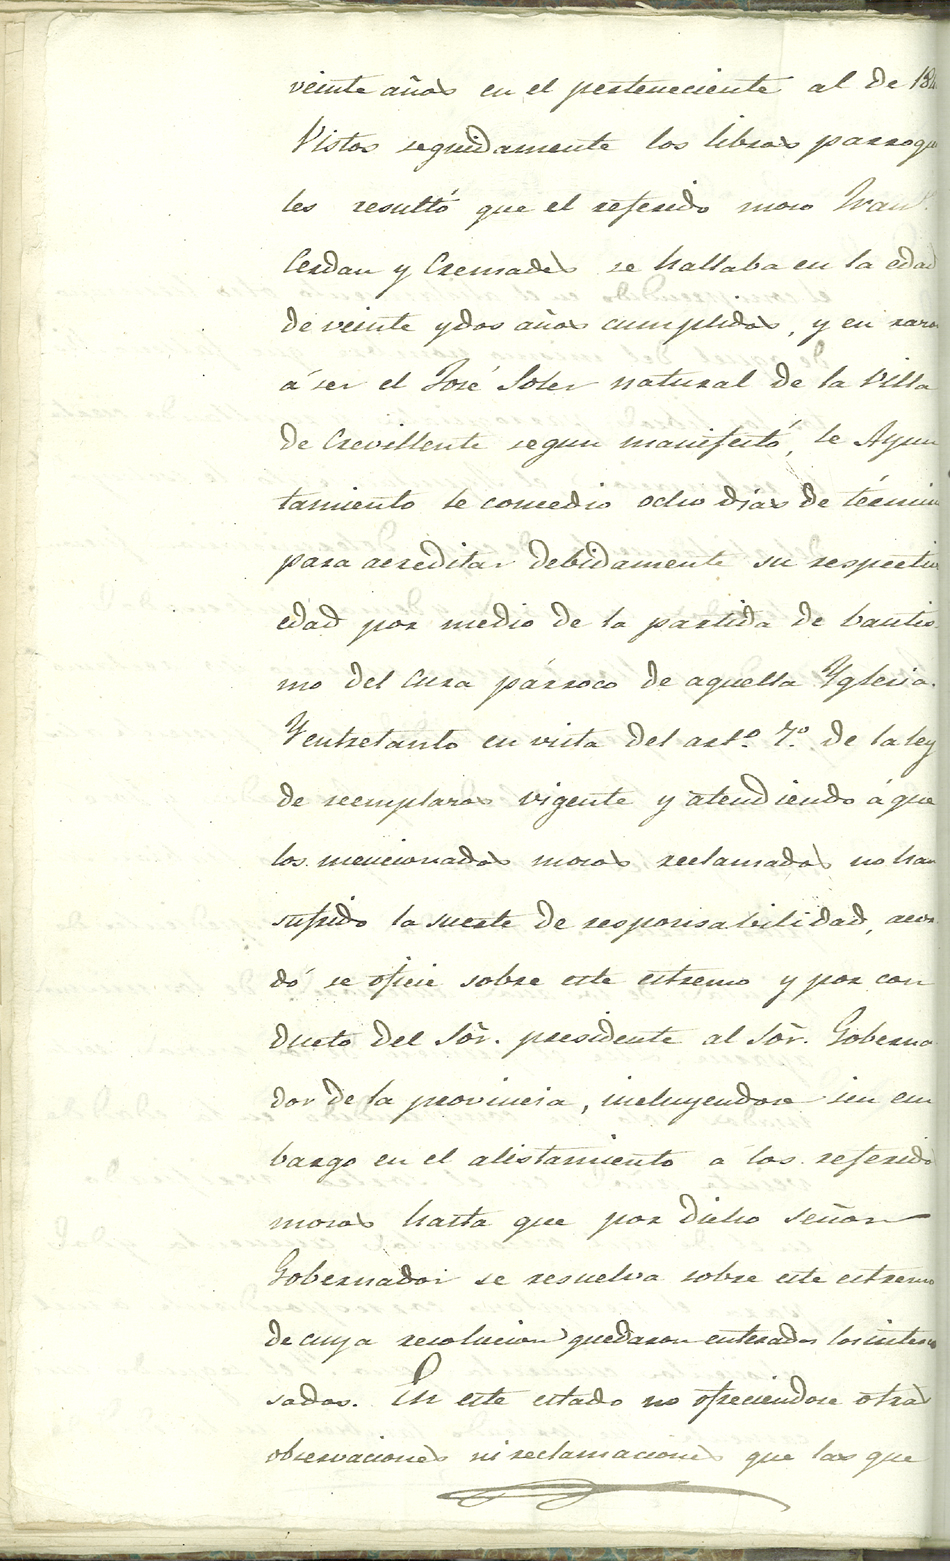 veinte años en el perteneciente al de 18
Vistos seguidamente los libros parroqu
les resultó que el referido moso Fran.
Cerdan y Cremades se hallaba en la edad
de veinte y dos años cumplidos, y en razo
á ser el José Soler natural de la Villa
de Crevillente segun manifestó, le Ayun
tamiento le concedio ocho dias de términ
para acreditar debidamente su respectiv
edad por medio de la partida de bautis
mo del Cura párroco de aquella Yglesia.
Y entretanto en vista del artº. 7º. de la ley
de reemplazos vigente y atendiendo á que
los mencionados mosos reclamados no han
sufrido la suerte de responsabilidad, acor
dó se oficie sobre este estremo y por con
ducto del Sõr. presidente al Sõr. Goberna
dor de la provincia, incluyendose sin em
bargo en el alistamiento a los referido
mosos hasta que por dicho Señor
Gobernador se resuelva sobre este estremo
de cuya resolucion quedaron enterados los intere
sados. En este estado no ofreciendose otras
observaciones ni reclamaciones que las que